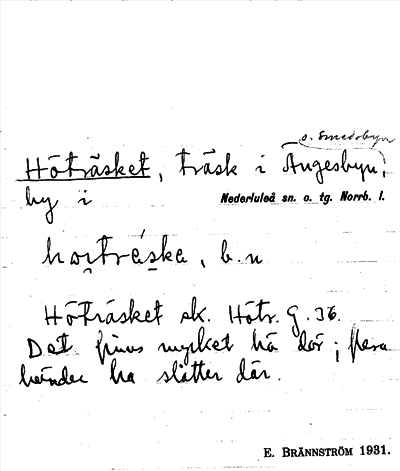 o. Smedsbyn
Höträsket, träsk i Ängesbyn,
by i
Nederluleå sn. o. tg. Norrb. l.
horträska, b.n
Höträsket sk. Hötr. G. 36.
Det finns mycket hö där; flera
bönder ha slåtter där.
E. BRÄNNSTRÖM 1931.